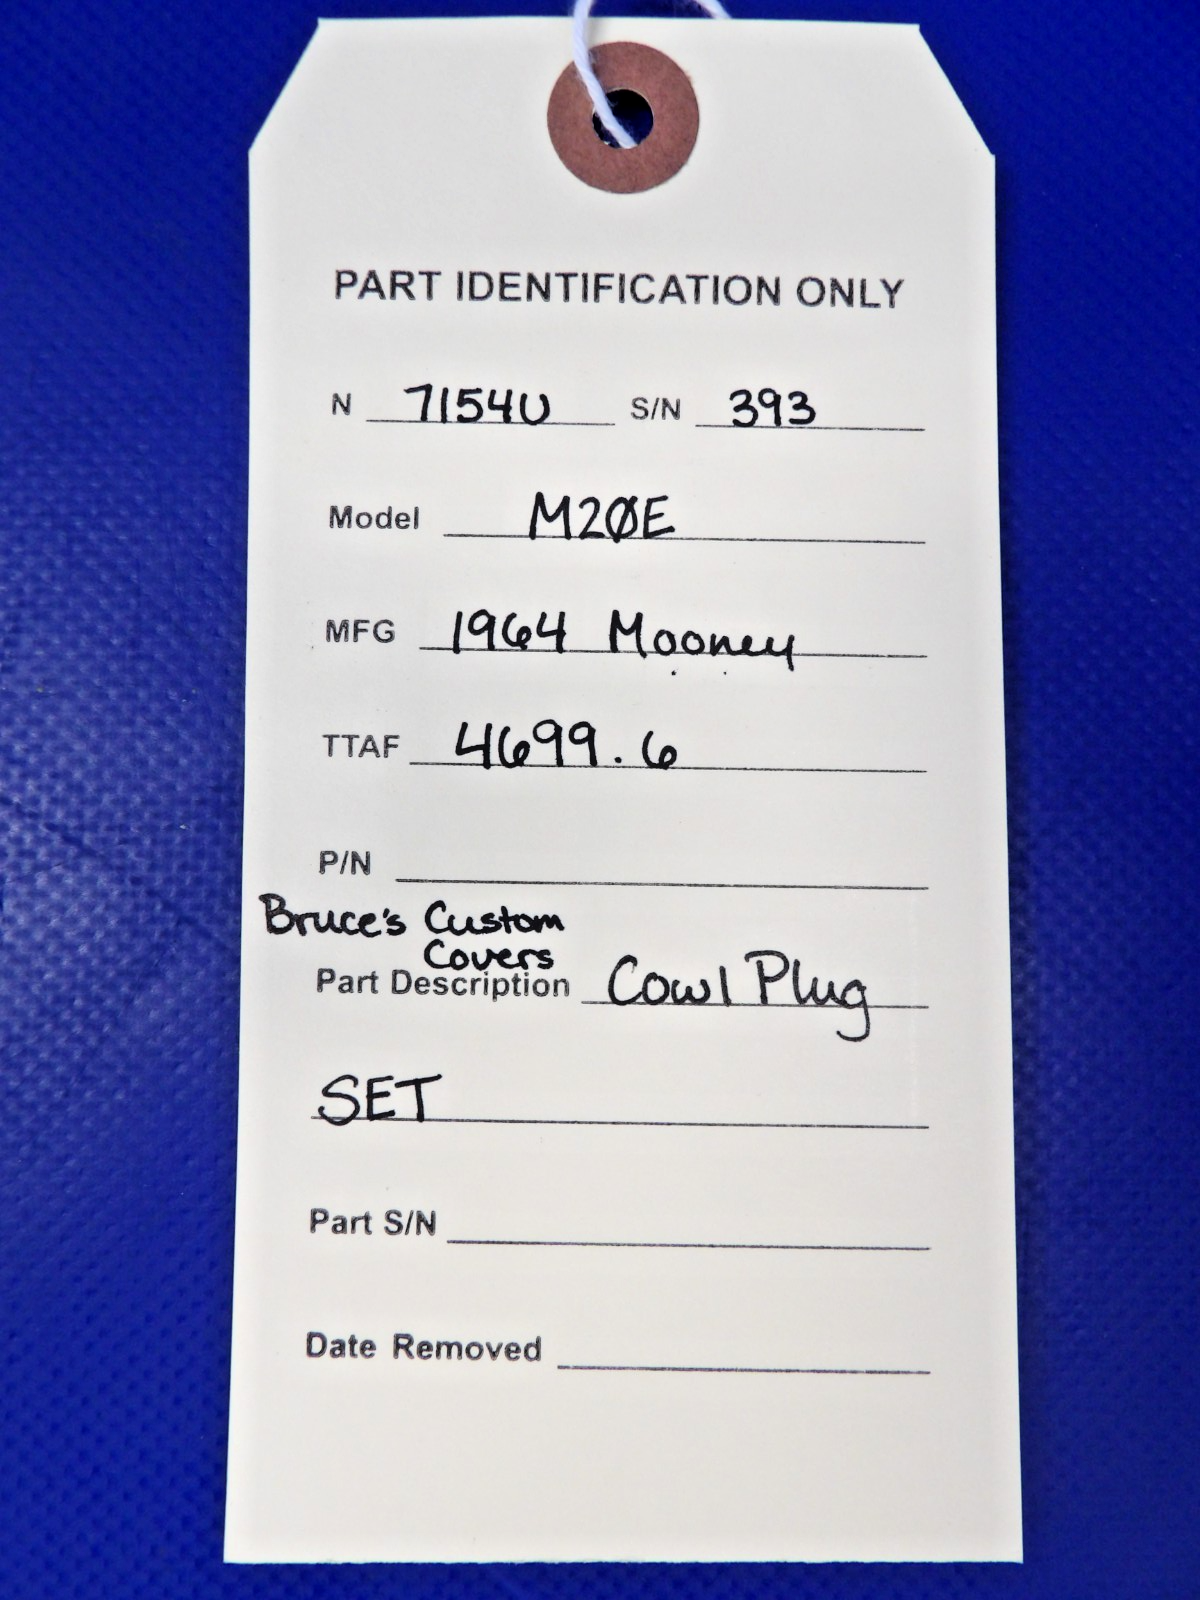 PART IDENTIFICATION ONLY
N 7154U S/N 393
Model M20E
MFG 1964 Mooney
TTAF 4699.6
P/N
Bruce's Custom
Covers
Part Description Cowl Plug
SET
Part S/N
Date Removed